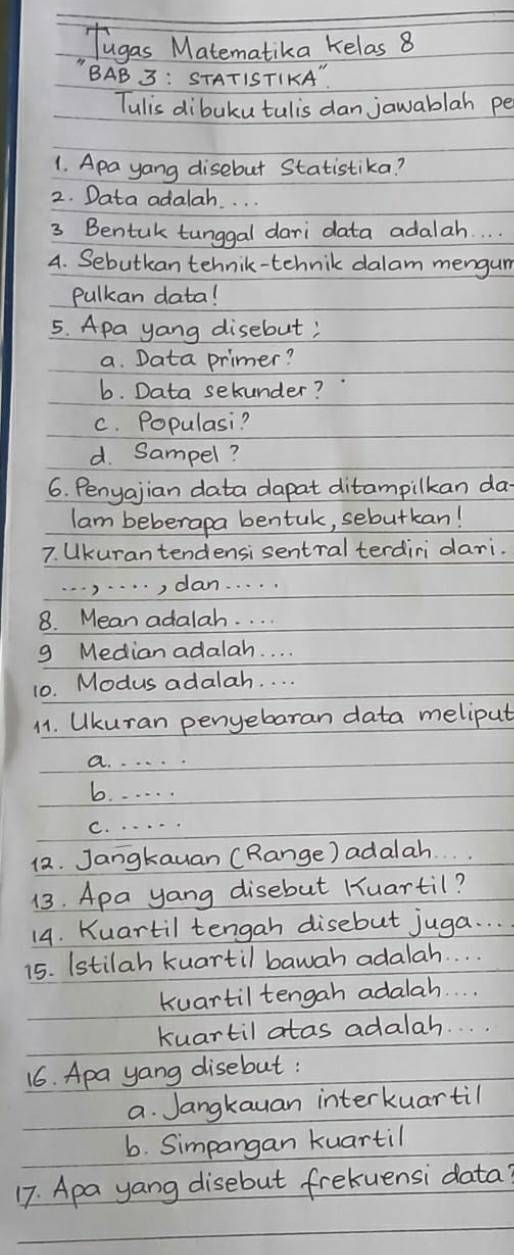 Tugas Matematika Kelas 8
"BAB 3: STATISTIKA".
Tulis dibuku tulis dan jawablah pe
1. Apa yang disebut Statistika?
2. Data adalah....
3 Bentuk tunggal dari data adalah....
4. Sebutkan tehnik-tehnik dalam mengum
pulkan data!
5. Apa yang disebut:
a. Data primer?
b. Data sekunder?
c. Populasi?
d. Sampel?
6. Penyajian data dapat ditampilkan da-
lam beberapa bentuk, sebutkan!
7. Ukuran tendensi sentral terdiri dari.
...,...., dan.....
8. Mean adalah....
9 Median adalah....
10. Modus adalah....
11. Ukuran penyebaran data meliput
a......
b......
c......
12. Jangkauan (Range) adalah....
13. Apa yang disebut Kuartil?
14. Kuartil tengah disebut juga...
15. Istilah kuartil bawah adalah....
kuartil tengah adalah....
kuartil atas adalah....
16. Apa yang disebut:
a. Jangkauan interkuartil
b. Simpangan kuartil
17. Apa yang disebut frekuensi data?